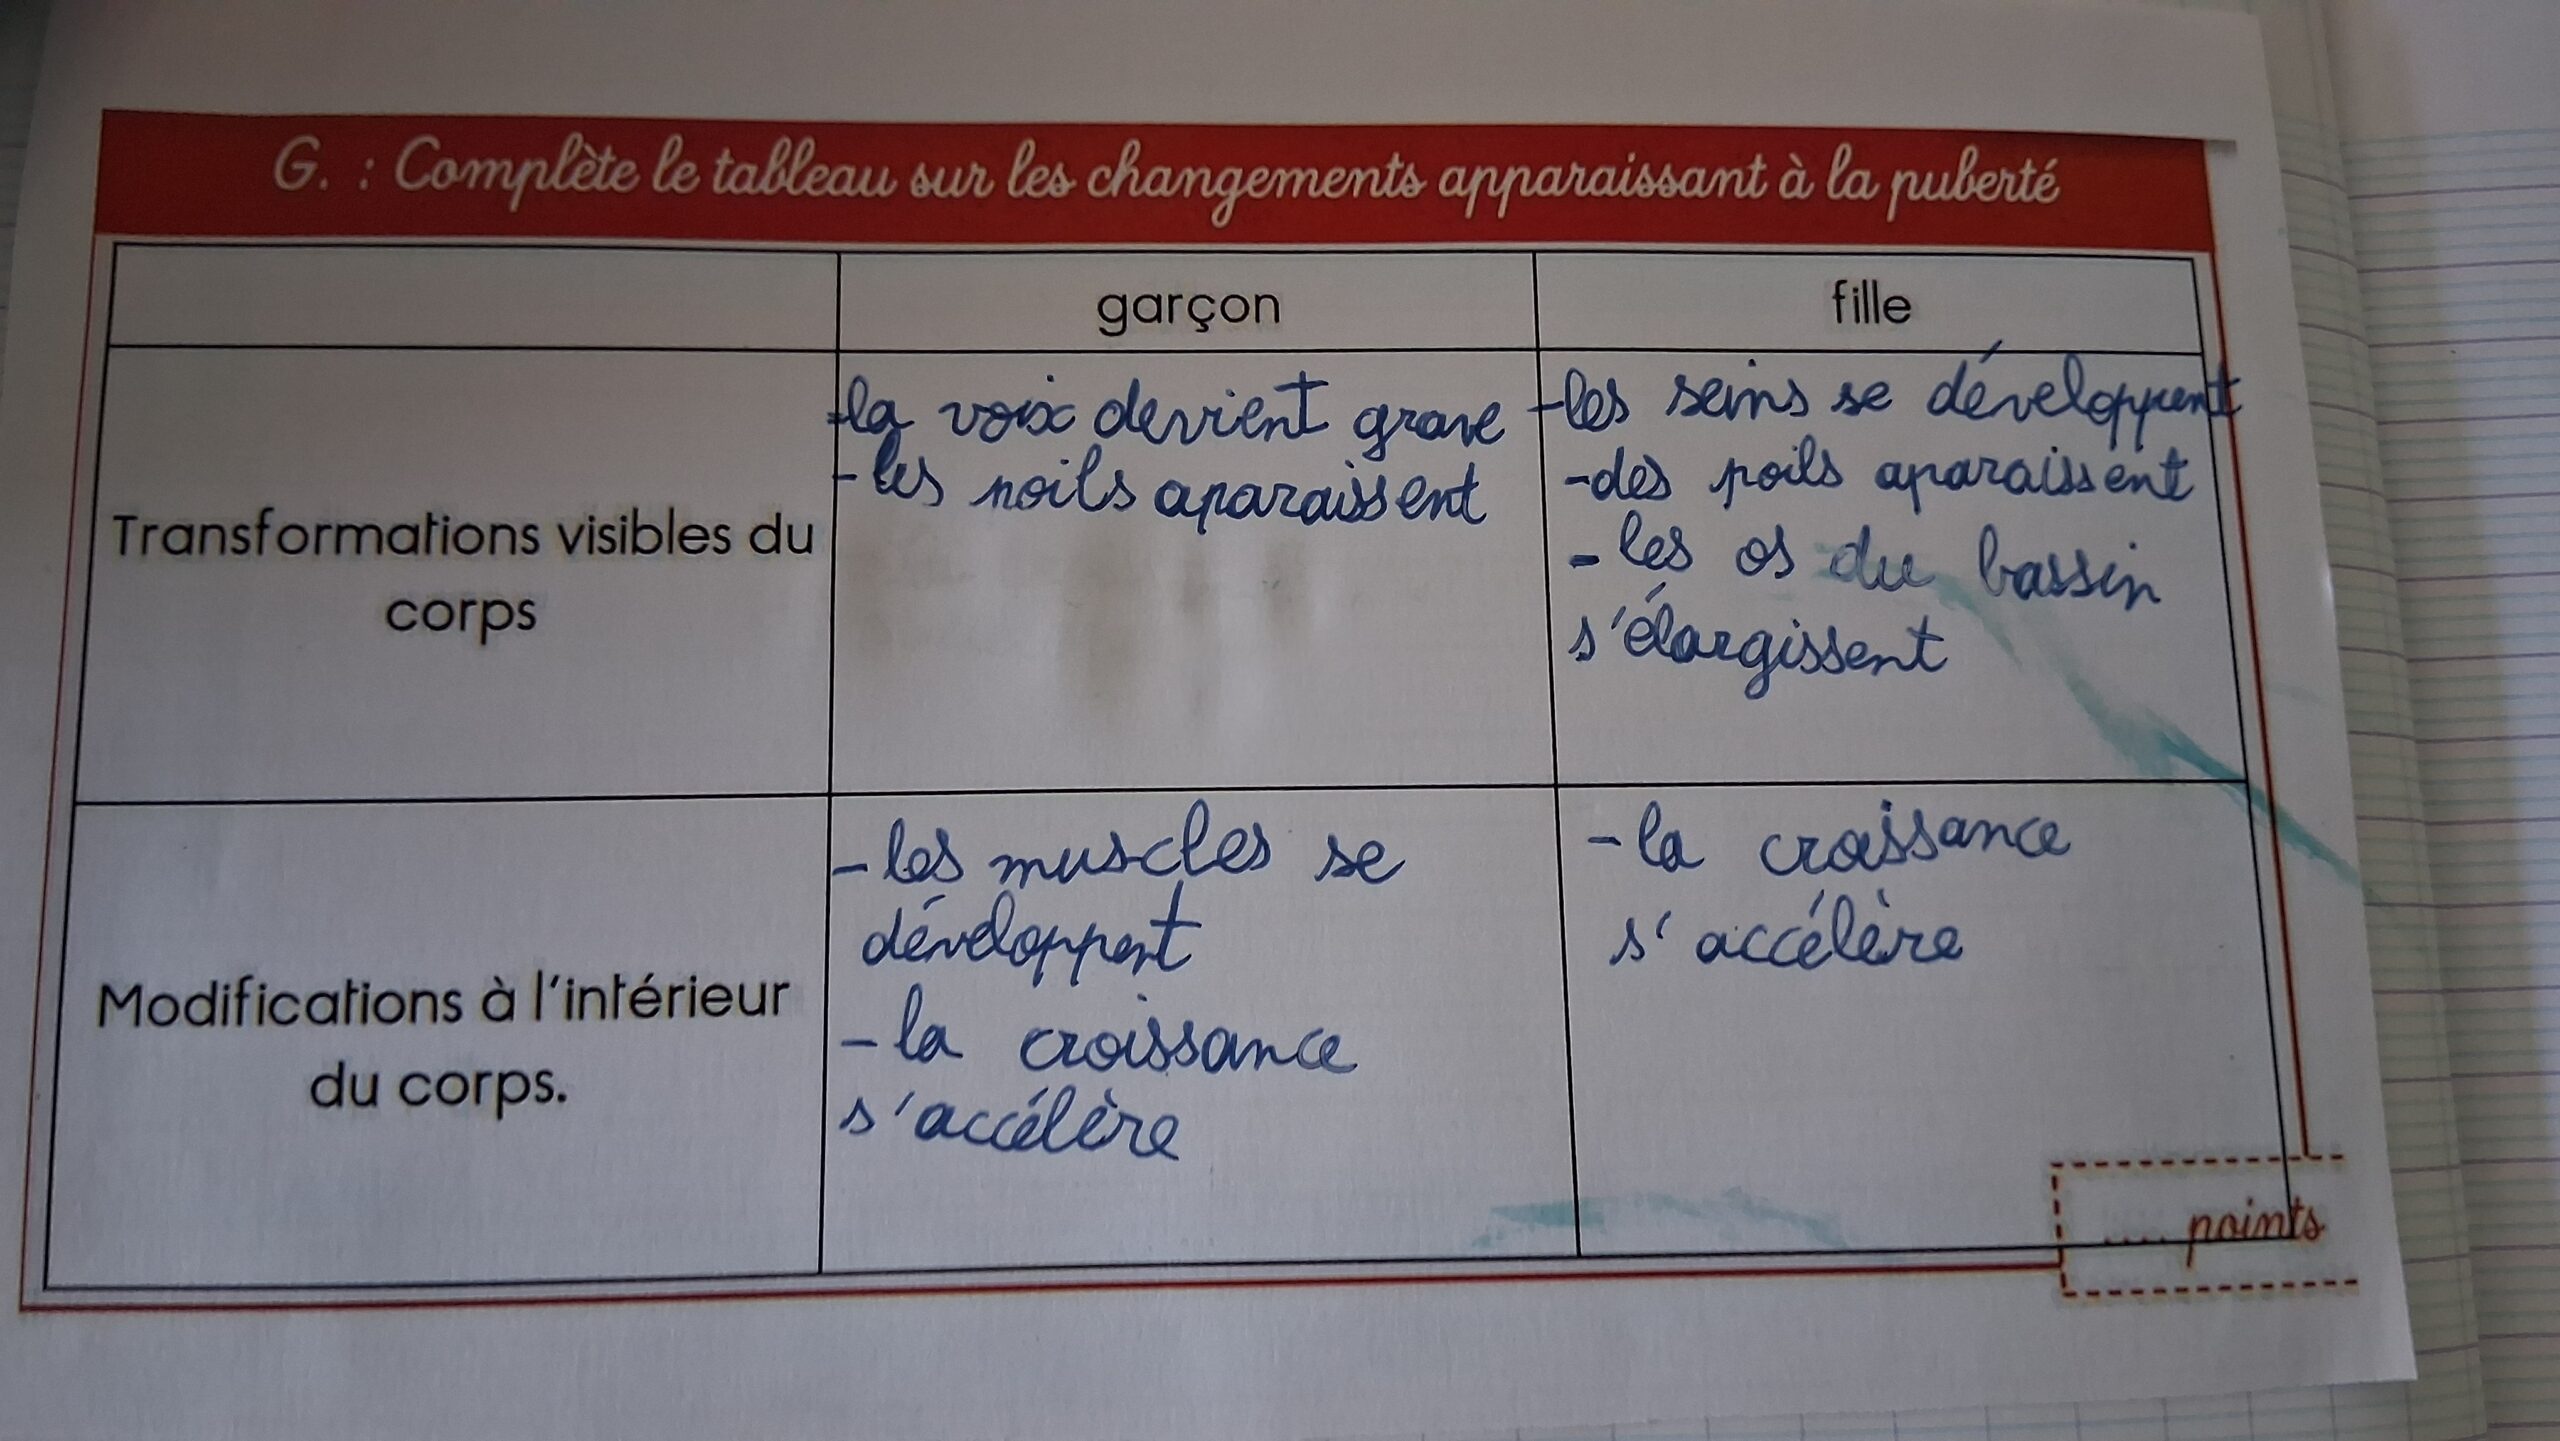 G. : Complète le tableau sur les changements apparaissant à la puberté
garçon
fille
Transformations visibles du
corps
-la voix devient grave
-les poils aparaissent
-les seins se développent
-des poils aparaissent
- les os du bassin
s'élargissent
Modifications à l'intérieur
du corps.
- les muscles se
développent
- la croissance
s'accélère
- la croissance
s'accélère
.... points